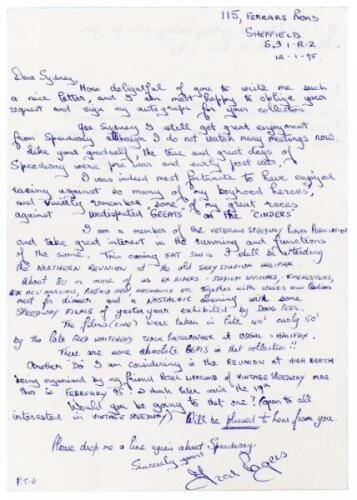 115, FERRARS ROAD
SHEFFIELD
S9 1.R.Z
12-1-95.
Dear Sydney,
How delightful of you to write me such
a nice letter, and I am most happy to oblige your
request and sign my autograph for your collection
Yes Sydney I still get great enjoyment
from Speedway although I do not watch many meetings now.
Like your goodself, the true and great days of
Speedway were pre war and early post wars.
I was indeed most fortunate to have enjoyed
racing against so many of my boyhood heroes,
and vividly remember some of my great races
against undisputed GREATS of the "CINDERS"
I am a member of the VETERANS SPEEDWAY RIDERS ASSOCIATION
and take great interest in the running and functions
of the same. This coming SAT 14th I shall be attending
the NORTHERN REUNION at the old SHAY STADIUM HALIFAX
About 80 or more of us EX RIDERS - STADIUM OFFICIALS -
EX NEWSPAPERS, together with wives and
meet for dinner and a NOSTALGIC evening with some
SPEEDWAY FILMS of yesteryear exhibited by DOUG PEEL.
The films (cine) were taken in late 40' early 50'
by the late RED WHITEHEAD TRACK PHOTOGRAPHER at ODSAL - HALIFAX.
There are some absolute GEMS in that collection!!
Another Do I am considering is the REUNION at HIGH BEECH
being organised by my friend PETER LIPSCOMB of VINTAGE SPEEDWAY MAG
this is FEBRUARY 95. I think later said the 19th
Would you be going to that one? (open to all
interested in VINTAGE SPEEDWAY) Will be pleased to hear from you.
Please drop me a line again about Speedway.
Sincerely yours
P.T.O